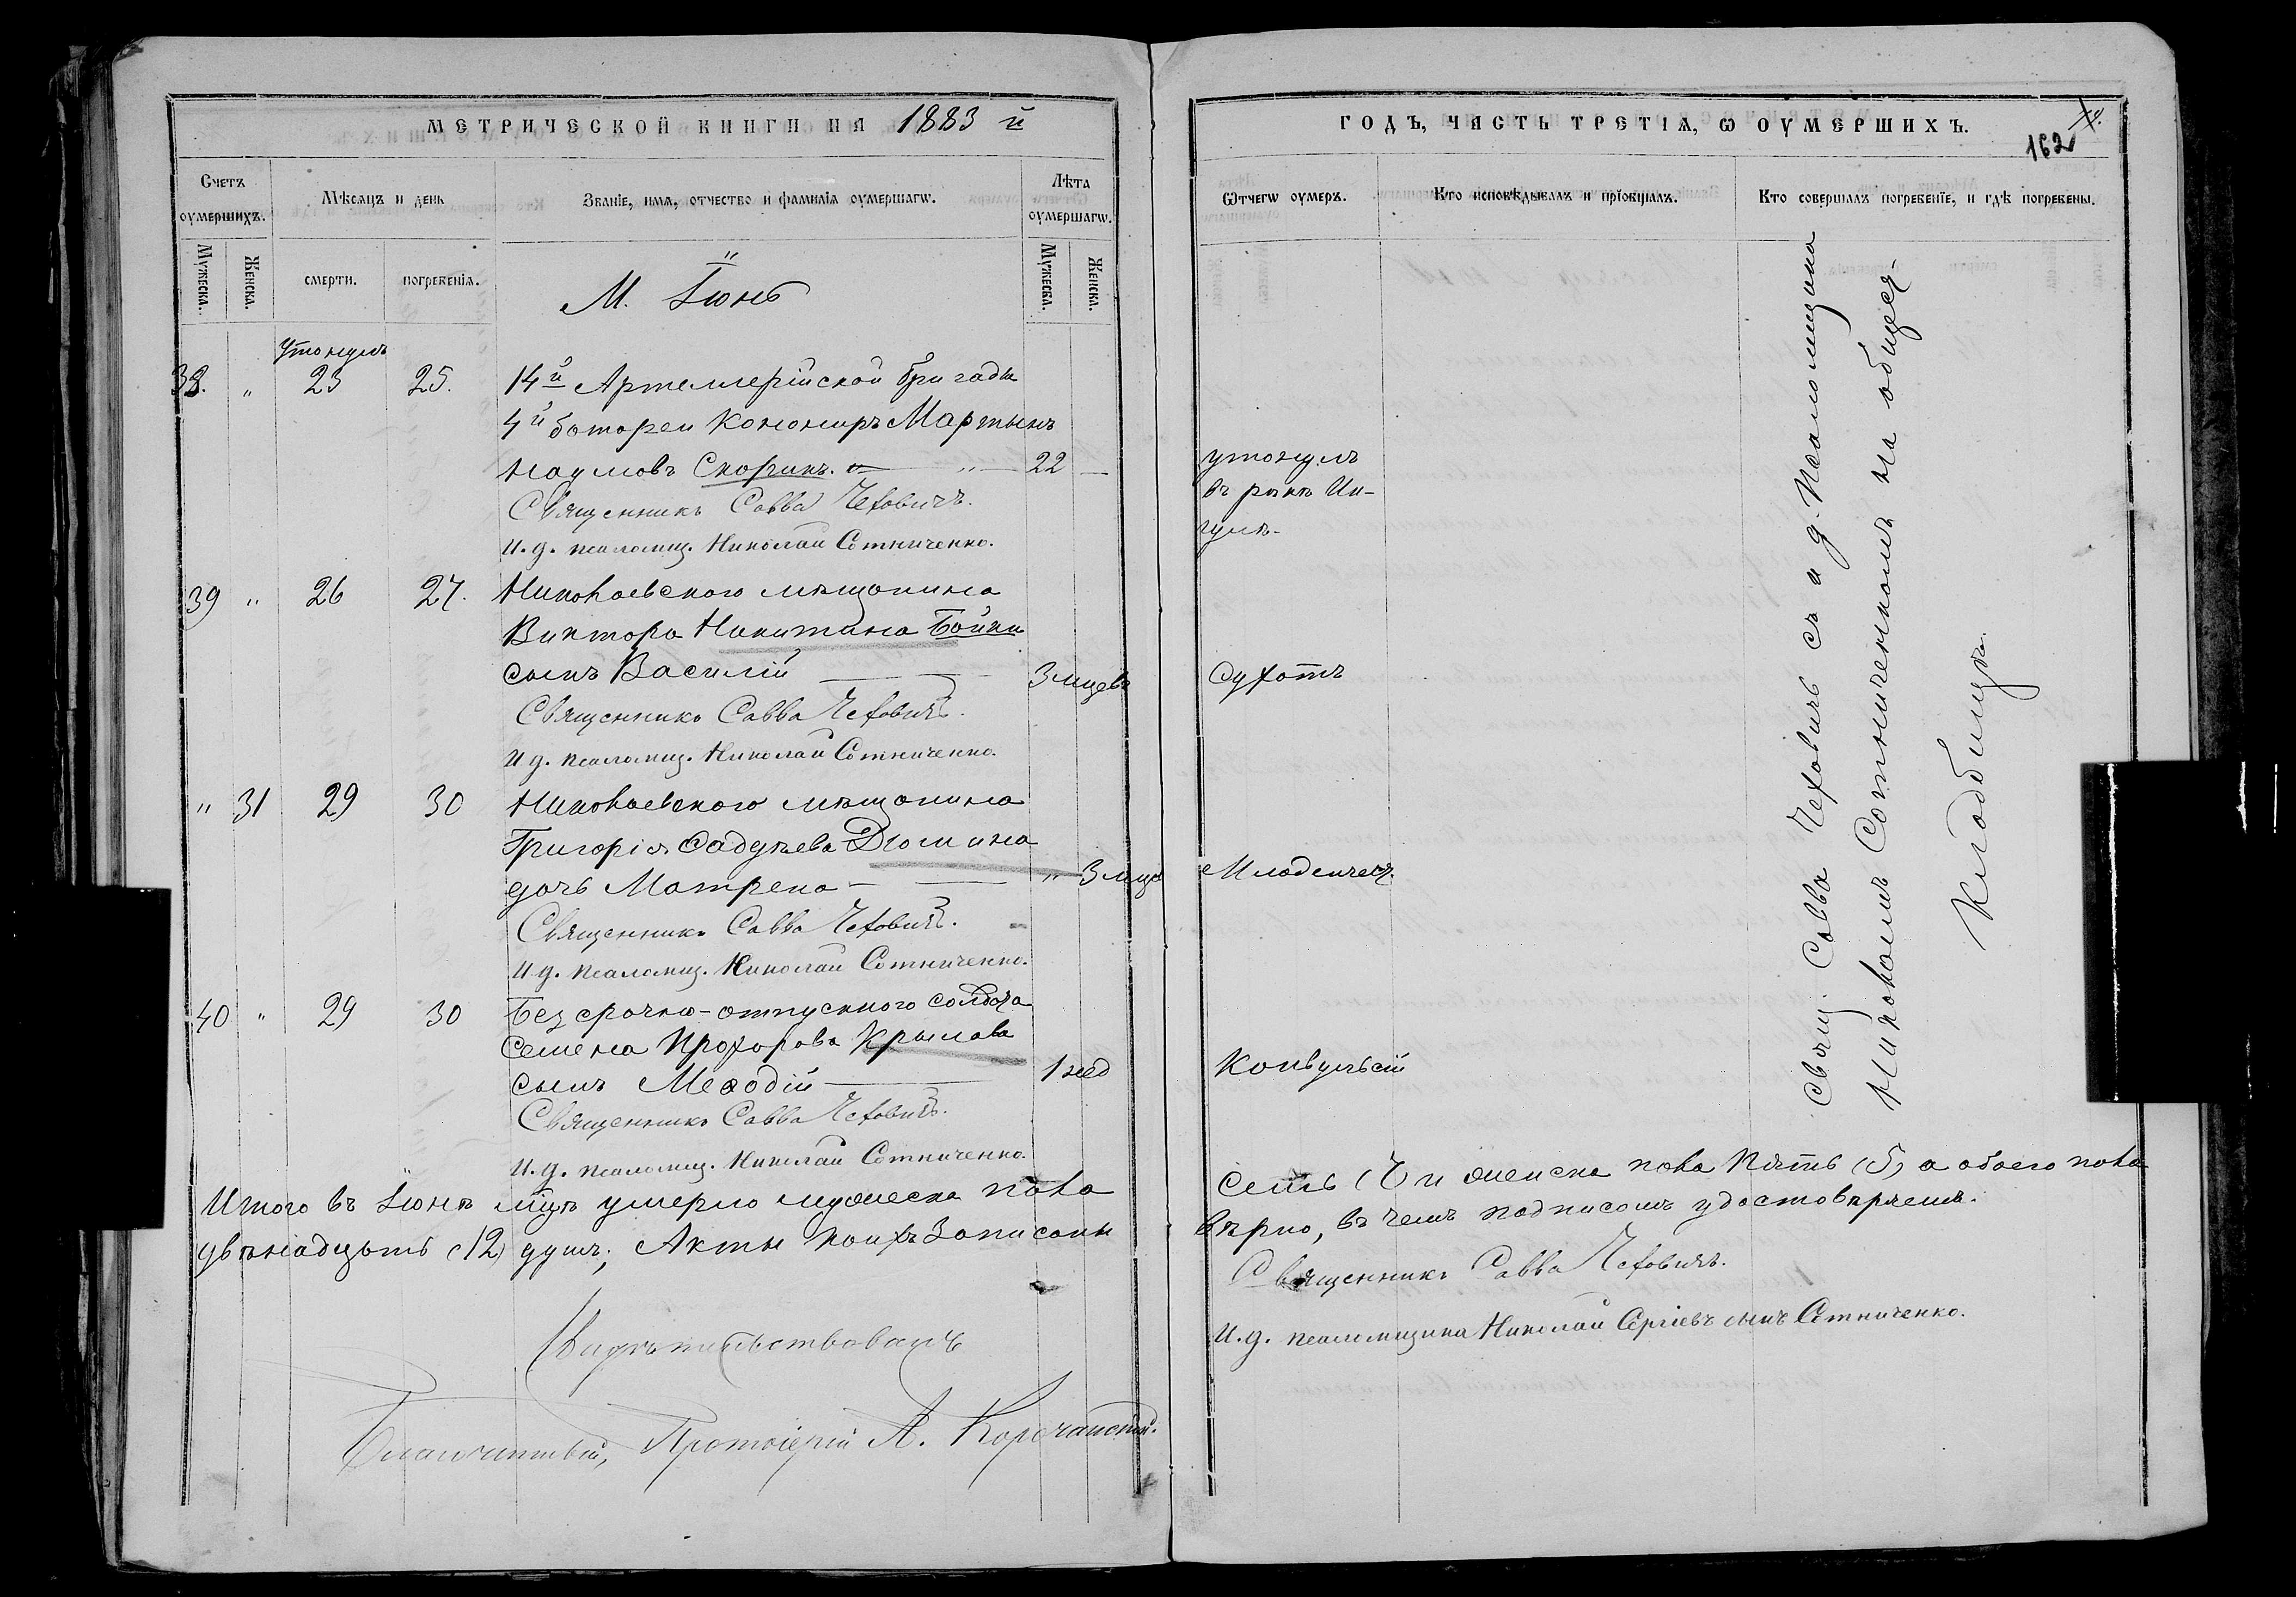 МЕТРИЧЕСКОЙ КНИГИ НА 1883 й
Счетъ оумершихъ.
Мѣсяцъ и день
Званіе, имя, отчество и фамилія оумершагѡ.
Лѣта оумершагѡ.
Мужеска.
Женска.
смерти.
погребенія.
Мужеска.
Женска.
М. Іюнь
Утонулъ
38. " 23 25. 14й Артеллерійской бригады
4й батареи Канониръ Мартынъ
Наумовъ Скорикъ. " 22
Священникъ Савва Чеховичъ.
И. д. псаломщ. Николай Сотниченко.
39 " 26 27. Николаевского мѣщанина
Виктора Никитина Бойки
сынъ Василій 3 мцевъ
Священникъ Савва Чеховичъ.
И д. псаломщ. Николай Сотниченко.
" 31 29 30 Николаевского мѣщанина
Григорія Садуѣева Дюмина
дочь Матрена " 3 мца
Священникъ Савва Чеховичъ.
И д. псаломщ. Николай Сотниченко.
40 " 29 30 Безсрочно-отпускного солдата
Семена Прохорова Крылова
сынъ Меѳодій 1 нед
Священникъ Савва Чеховичъ.
И. д. псаломщ. Николай Сотниченко.
Итого въ Іюнѣ мцѣ умерло мужеска пола
двѣнадцать (12) душъ; Акты коихъ Записаны
Свидѣтельствовалъ
Благочинный, Протоіерей А. Корчинскій.
ГОДЪ, ЧАСТЬ ТРЕТІЯ, Ѡ ОУМЕРШИХЪ.
162
Ѿчегѡ оумеръ.
Кто исповѣдывалъ и пріобщалъ.
Кто совершалъ погребеніе, и гдѣ погребены.
утонулъ
въ рѣкѣ Ин-
гулѣ.
Сухотъ
Младенчес.
Конвульсій
Свящ. Савва Чеховичъ съ и д. Псаломщика
Николаемъ Сотниченкомъ на общес.
Кладбищѣ.
Семь (7) и женска пола Пять (5) а обоего пола
вѣрно, въ чемъ подписомъ удостовѣряемъ.
Священникъ Савва Чеховичъ.
И. д. псаломщика Николай Сергіевъ сынъ Сотниченко.